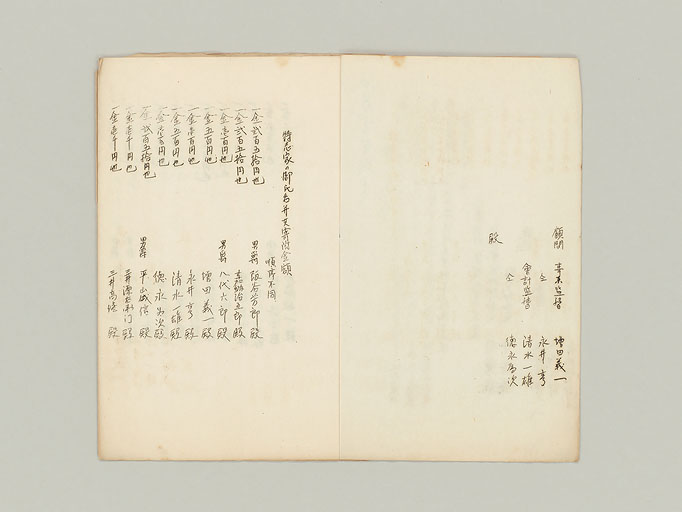 顧問 事業監督 増田義一
仝 永井亨
会計監督 清水一雄
仝 徳永為次
殿
特志家の御氏名并又寄附金額
順序不同
一金弐百五拾円也 男爵 阪谷芳郎殿
一金弐百五拾円也 嘉納治五郎殿
一金壱百円也 男爵 八代六郎殿
一金五百円也 増田義一殿
一金壱百円也 永井亨殿
一金五百円也 清水一雄殿
一金壱百円也 徳永為次殿
一金弐百五拾円也 男爵 平山成信殿
一金壱千円也 三井源右衛門殿
一金壱千円也 三井高 殿